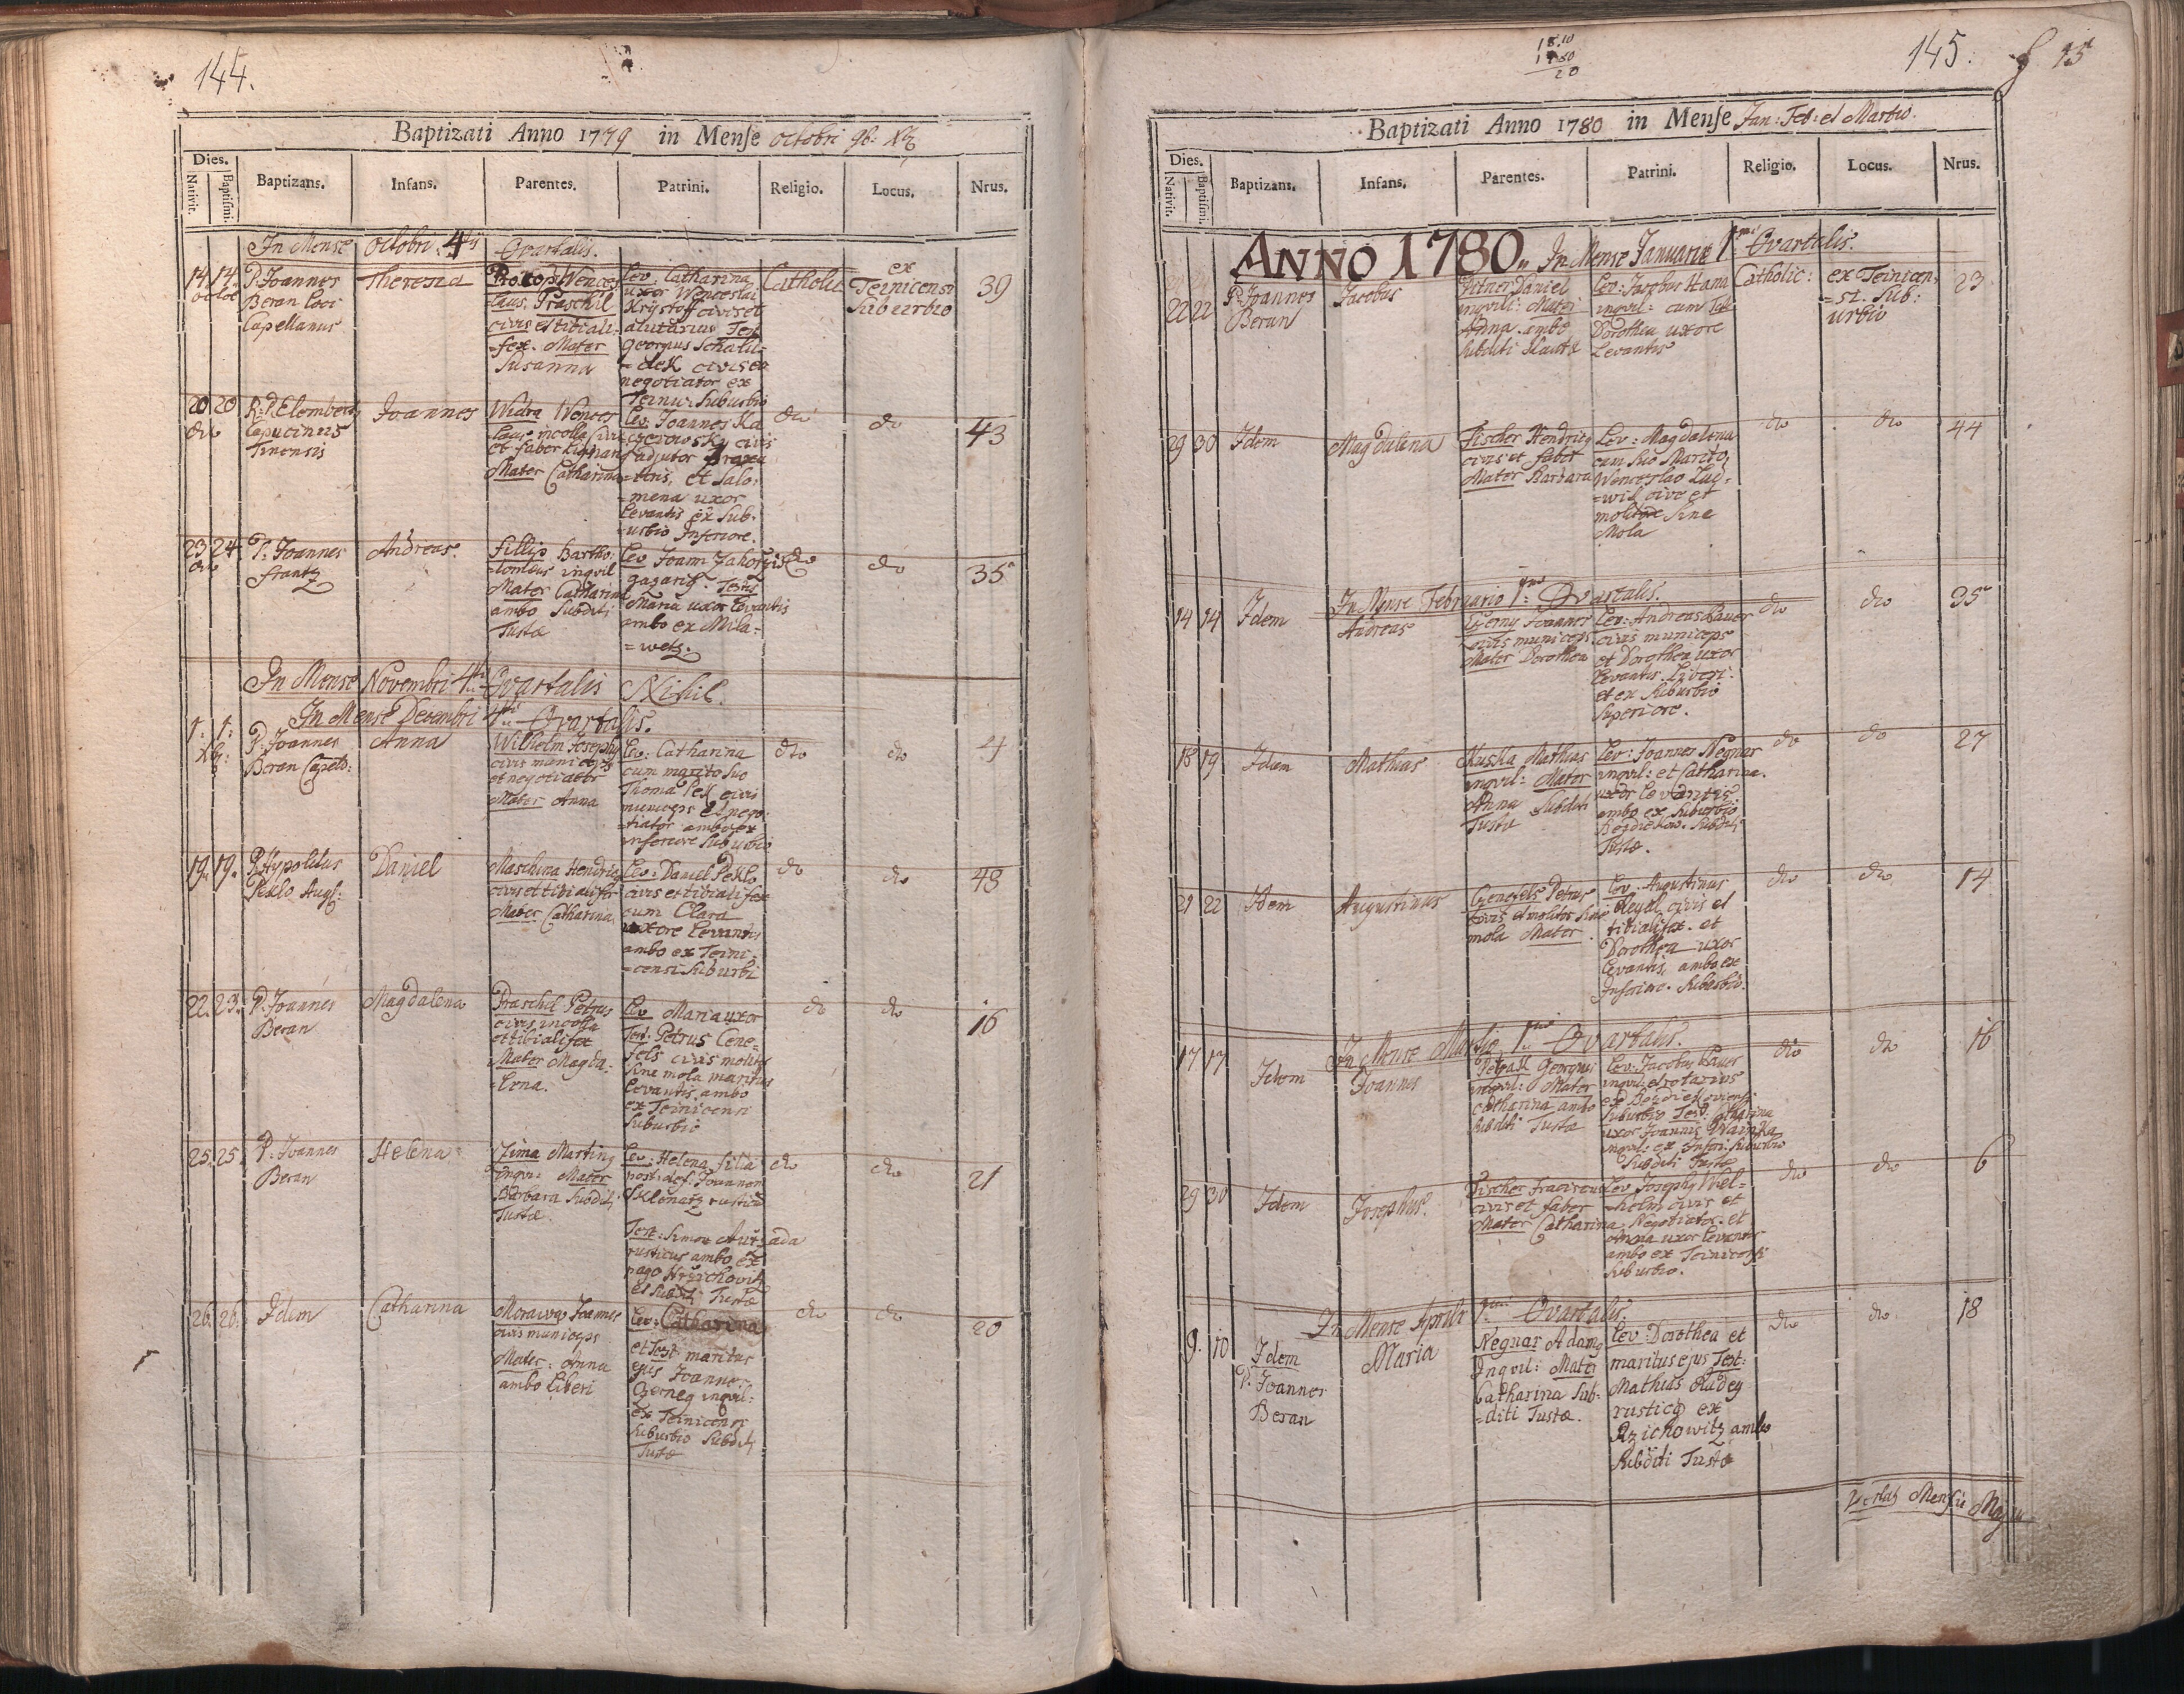 144.
Baptizati Anno 1779 in Mense Octobri 9b: Xb
Dies.
Nativit.
Baptismi.
Baptizans.
Infans.
Parentes.
Patrini.
Religio.
Locus.
Nrus.
In Mense Octobri 4tis Qvartalis.
14 14
octob
P. Joannes
Beran Loci
Capellanus
Theresia
Prokop Wences
laus, Praschil
civis et tibiali-
=fex. Mater
Susanna
Lev. Catharina
uxor Wenceslai
Krystoff civis et
alutarius Test
Georgius Schalu-
=dek civis et
negotiator ex
Teinic: Suburbio
Catholic
ex
Teinicensi
Suburbio
39
20 20
dto
R: P. Elombert
Capucinus
Tinensis
Joannes
Widra Wences
laus incolla civis
et faber lignari
Mater Catharina
Lev. Joannes Ka
czerowsky civis
adjutor Braxa
=toris, et Salo-
=mena uxor
Levantis ex Sub-
=urbio Inferiore.
dto
dto
43
23 24
dto
P. Joannes
Frantz
Andreas.
Fillip Bartho-
=lomeus inqvil
Mater Catharina
ambo Subditi
Tustæ
Lev Joann Zahorzik
gazarig. Testis
Maria uxor Levantis
ambo ex Mila-
=wetz.
dto
dto
35
In Mense Novembri 4ti Qvartalis Nihil.
In Mense Decembri 4ti Qvartalis.
1. 1.
Xb:
P. Joannes
Beran Capelo:
Anna
Wilhelm Joseph
civis municeps
et negotiator
Mater Anna
Lev: Catharina
cum marito suo
Thoma Pek civis
municeps et nego-
=tiator ambo ex
inferiore Suburbio
dto
dto
4
19. 19.
P. Hypolitus
Peklo Aug:
Daniel
Maschina Hendrieg
civis et tibialifex
Mater Catharina
Lev: Daniel Peklo
civis et tibialifex
cum Clara
uxore Levantis
ambo ex Teini-
=censi Suburbi
do
do
48
22. 23.
P. Joannes
Beran
Magdalena
Praschil Petrus
civis incolla
et tibialifex
Mater Magda-
=lena.
Lev Maria uxor
Test: Petrus Cene-
=fels civis molitor
sine mola maritus
Levantis ambo
ex Teinicensi
Suburbio
do
do
16
25. 25
P. Joannes
Beran
Helena
Zima Marting
inqvi: Mater
Barbara Subditi
Tustæ.
Lev: Helena filia
post def: Joannem
Sklenarz rustico
Test: Simon Autrada
rusticus ambo ex
pago Hrzichovitz
et Subditi Tustæ
do
do
21
26. 26.
Idem
Catharina
Morawa Joannes
civis municeps
Mater: Anna
ambo Liberi
Lev: Catharina
et Test maritus
ejus Joannes
Czerneg inqvil:
ex Teinicensi
Suburbio Subditi
Tustæ
do
do
20
145.
Baptizati Anno 1780 in Mense Jan: Feb: et Martio.
Dies.
Nativit.
Baptismi.
Baptizans.
Infans.
Parentes.
Patrini.
Religio.
Locus.
Nrus.
ANNO 1780. In Mense Januario 1mi Qvartalis.
22 22
P. Joannes
Beran
Jacobus
Daniel
inqvili: Mater
Anna ambo
Subditi
Lev: Jacobus Hana
inqvil: cum Test
Dorothea uxore
Levantis
Catholic:
ex Teinicen-
=si. Sub:
urbio
23
29 30
Idem
Magdalena
Fischer Hendrieg
civis et faber
Mater Barbara
Lev: Magdalena
cum suo Marito
Wenceslao Lud-
=wik cive et
molitore sine
Mola
do
do
44
In Mense Februario 1mi Qvartalis.
14 14
Idem
Andreas
Czerny Joannes
civis municeps
Mater Dorothea
Lev: Andreas Bauer
civis municeps
et Dorothea uxor
Levantis. Liberi.
et ex Suburbio
Superiore.
do
do
35
18 19
Idem
Mathias
Kuska Mathias
inqvil: Mater
Anna Subditi
Tustæ
Lev: Joannes Negnar
inqvil: et Catharina
uxor Levantis
ambo ex Suburbio
Bezdiekow. Subditi
Tustæ.
do
do
27
21 22
Idem
Augustinus
Czenefels Petrus
civis et molitor sine
mola Mater.
Lev. Augustinus
civis et
tibialifex. et
Dorothea uxor
Levantis, ambo ex
Inferiore. Suburbio.
do
do
14
In Mense Martio 1mi Qvartalis.
17 17
Idem
Joannes
Petrak Georgius
inqvil: Mater
Catharina ambo
Subditi Tustæ
Lev: Jacobus Bauer
inqvil et rotarius
ex Bezdiekoviensi
Suburbio Test. Catharina
uxor Joannis
inqvil: ex Inferi: Suburbio
Subditi Tustæ
do
do
16
29 30
Idem
Josephus.
Fischer Franciscus
civis et faber
Mater Catharina
Lev Joseph Wil-
=helm civis et
Negotiator. et
Anna uxor Levantis
ambo ex Teinicensi
Suburbio.
do
do
6
In Mense Aprili Qvartalis.
9. 10
Idem
P. Joannes
Beran
Maria
Negnar Adamg
Inqvil: Mater
Catharina Sub-
=diti Tustæ.
Lev Dorothea et
maritus ejus Test:
Mathias Radey
rusticg ex
Rzichowitz ambo
Subditi Tustæ
do
do
18
Mensis Maji